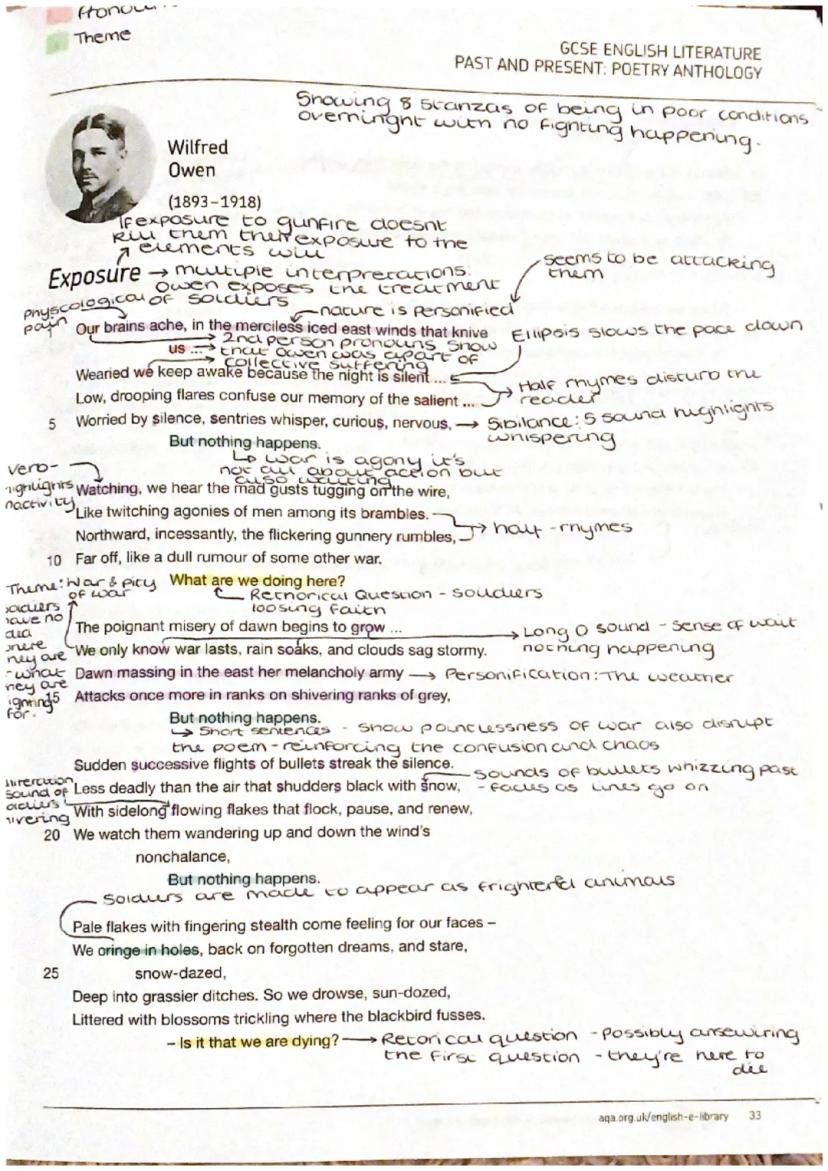 Theme
GCSE ENGLISH LITERATURE
PAST AND PRESENT: POETRY ANTHOLOGY
Showing 8 stanzas of being in poor conditions
overninght with no fighting happening.
Wilfred
Owen
(1893–1918)
If exposure to gunfire doesnt
kill them their exposure to the
elements will
Exposure → multiple interpretations:
Owen exposes the treatment
of soldiers
seems to be attacking
them
physcological
pain
nature is personified
Our brains ache, in the merciless iced east winds that knive
us ...
2nd person pronouns show
that owen was apart of
collective suffering
Ellipsis slows the pace down
Wearied we keep awake because the night is silent ...
Low, drooping flares confuse our memory of the salient ...
Half rhymes disturb the
reader
5 Worried by silence, sentries whisper, curious, nervous, → Sibilance: S sound highlights
whispering
But nothing happens.
↳ war is agony it's
not all about action but
also waiting
verb-
highlights
inactivity
Watching, we hear the mad gusts tugging on the wire,
Like twitching agonies of men among its brambles.
Northward, incessantly, the flickering gunnery rumbles,
half-rhymes
10 Far off, like a dull rumour of some other war.
What are we doing here?
Rethorical Question - souldiers
loosing faith
Theme: War & pity
of war
The poignant misery of dawn begins to grow ...
Long O sound - sense of wait
nothing happening
We only know war lasts, rain soaks, and clouds sag stormy.
have no
they are
- what
they are
for.
Dawn massing in the east her melancholy army → Personification: The weather
15 Attacks once more in ranks on shivering ranks of grey,
But nothing happens.
↳ Short sentences - show pointlessness of war also disrupt
the poem - reinforcing the confusion and chaos
Sudden successive flights of bullets streak the silence.
Sounds of bullets whizzing past
- fades as lines go on
Less deadly than the air that shudders black with snow,
sound of
With sidelong flowing flakes that flock, pause, and renew,
20 We watch them wandering up and down the wind's
nonchalance,
But nothing happens.
Soldiers are made to appear as frightened animals
Pale flakes with fingering stealth come feeling for our faces –
We cringe in holes, back on forgotten dreams, and stare,
25 snow-dazed,
Deep into grassier ditches. So we drowse, sun-dozed,
Littered with blossoms trickling where the blackbird fusses.
– Is it that we are dying? → Retorical question - Possibly answering
the first question - they're here to
die
aqa.org.uk/english-e-library 33